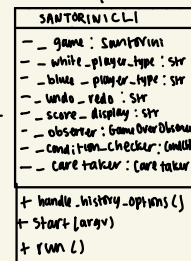 SANTORINICLI
- _ game : Santorini
- _ white_player_type : str
- _ blue_player_type : str
- _ undo_redo : str
- _ score_display : str
- _ observer : GameOverObserve
- _condition_checker :
- _ caretaker : Caretaker
+ handle_history_options()
+ start(argv)
+ run ()